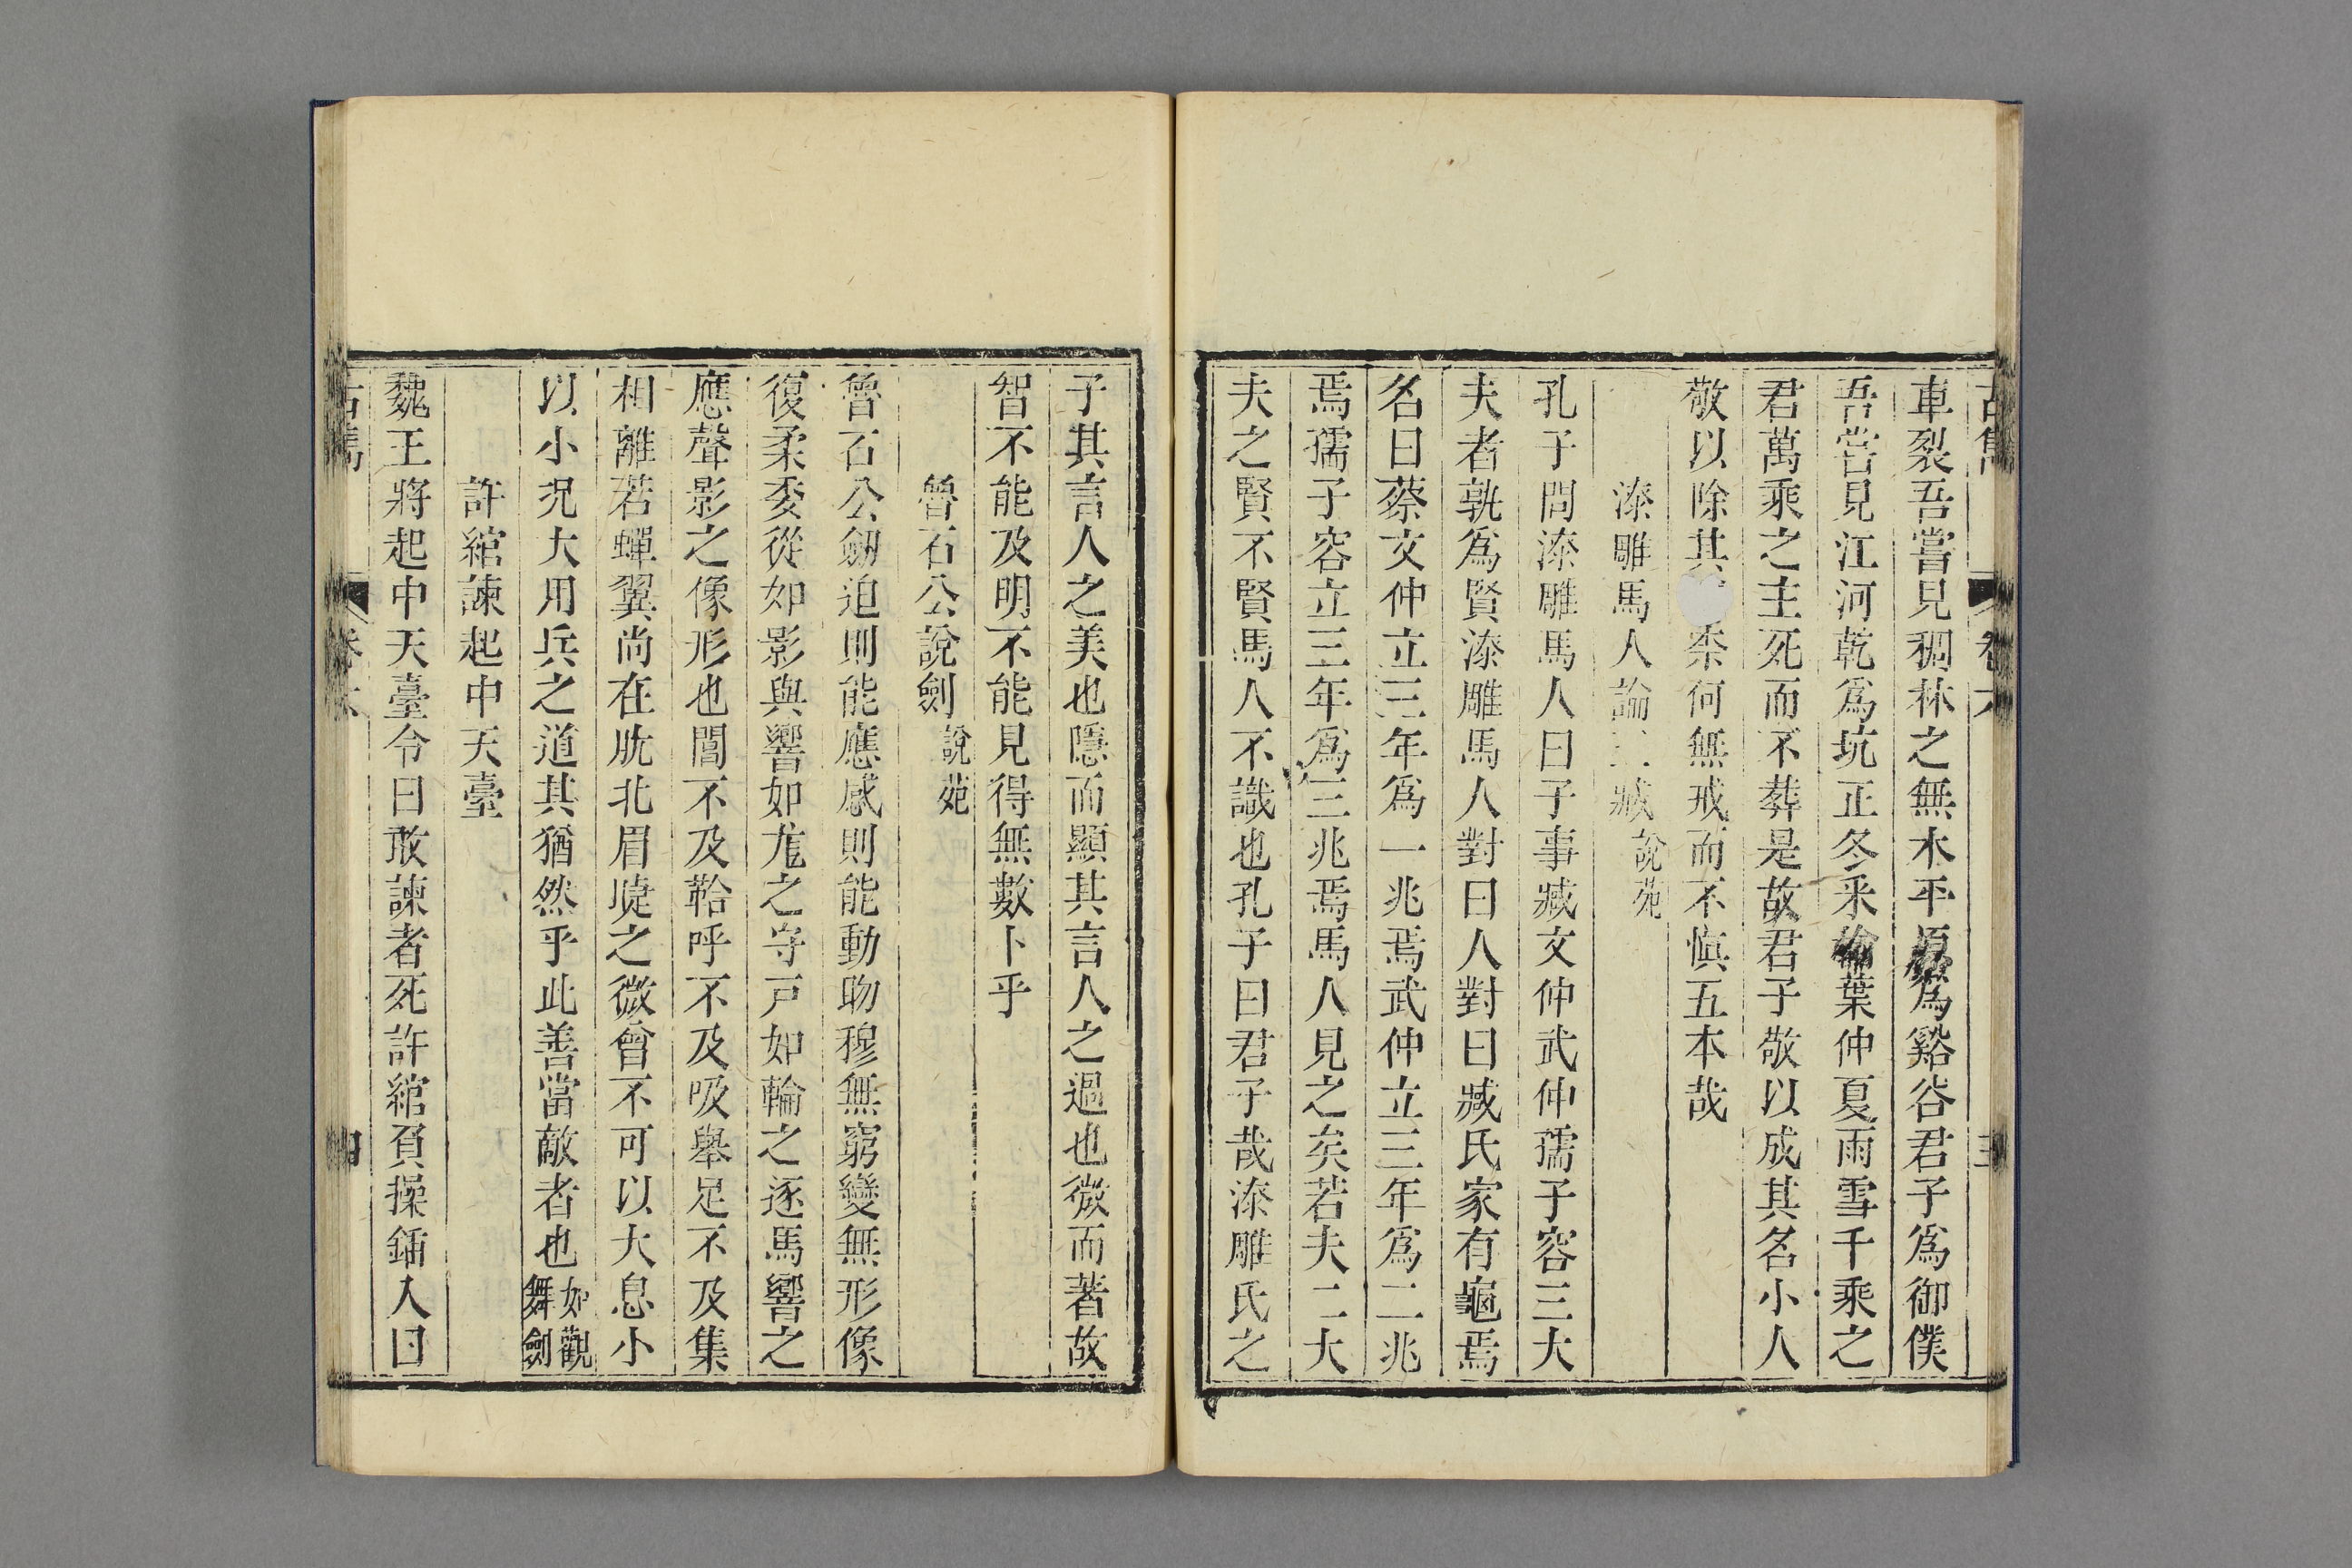 車裂吾嘗見稠林之無木平原爲谿谷君子爲御僕
吾嘗見江河乾爲坑正冬釆榆葉仲夏雨雪千乘之
君萬乘之主死而不葬是故君子敬以成其名小人
敬以除其柰何無戒而不慎五本哉
漆雕馬人論三臧說苑
孔子問漆雕馬人曰子事臧文仲武仲孺子容三大
夫者孰爲賢漆雕馬人對曰人對曰臧氏家有龜焉
名曰蔡文仲立三年爲一兆焉武仲立三年爲二兆
焉孺子容立三年爲三兆焉馬人見之矣若夫二大
夫之賢不賢馬人不識也孔子曰君子哉漆雕氏之
子其言人之美也隱而顯其言人之過也微而著故
智不能及明不能見得無數卜乎
魯石公說劍說苑
魯石公劒迫則能應感則能動昒穆無窮變無形像
復柔委從如影與響如尨之守戸如輪之逐馬響之
應聲影之像形也閶不及鞈呼不及吸舉足不及集
相離若蟬翼尚在肱北眉睫之微曾不可以大息小
以小況大用兵之道其猶然乎此善當敵者也如觀舞劍
許綰諫起中天臺
魏王將起中天臺令曰敢諫者死許綰負操鍤入曰